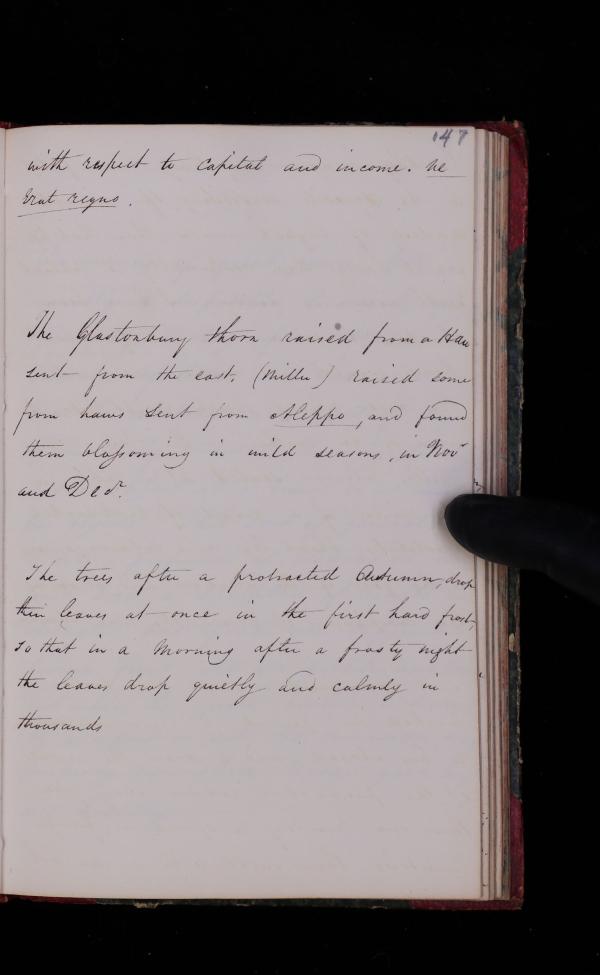 147
with respect to capital and income. Ne
erat regno.
The Glastonbury thorn raised from a Haw
sent from the east. (Miller) raised some
from haws sent from Aleppo, and found
them blossoming in mild seasons, in Novr
and Decr.
The trees after a protracted Autumn, drop
their leaves at once in the first hard frost,
so that in a Morning after a frosty night
the leaves drop quietly and calmly in
thousands